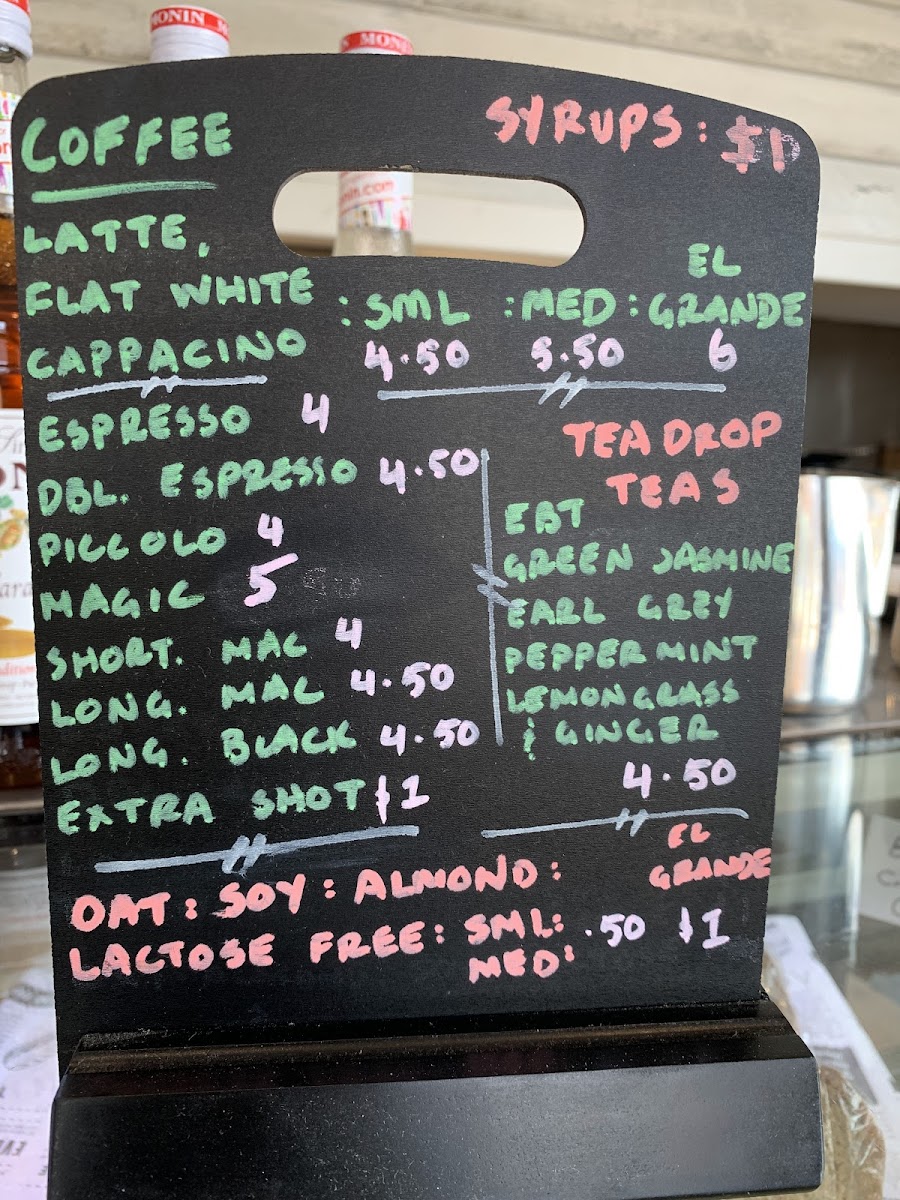 MONIN
MONIN
nin.com
COFFEE
SYRUPS: $1
LATTE,
FLAT WHITE
CAPPACINO
: SML : MED : EL GRANDE
4.50 5.50 6
ESPRESSO 4
DBL. ESPRESSO 4.50
PICCOLO 4
MAGIC 5
SHORT. MAC 4
LONG. MAC 4.50
LONG. BLACK 4.50
EXTRA SHOT $1
TEA DROP
TEAS
EBT
GREEN JASMINE
EARL GREY
PEPPERMINT
LEMONGRASS
& GINGER
4.50
EL
GRANDE
OAT: SOY: ALMOND:
LACTOSE FREE: SML: .50 $1
MED: